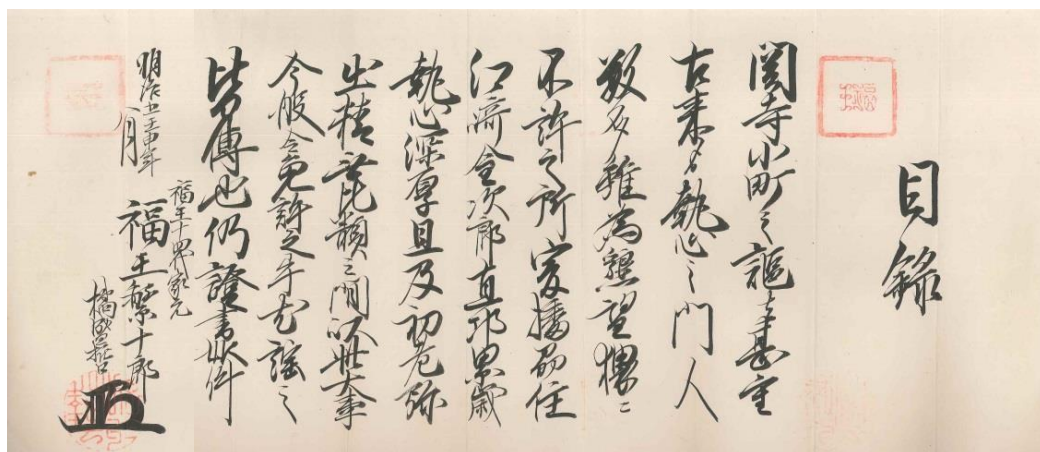 目録
関寺小町之謳者甚重
古来多執心之門人
数多雖為懇望猥ニ
不許之所爰播刕住
江﨑金次郎直邦累歳
執心深厚且及初老弥
出精無比類之間以此大事
今般令免許之畢尤謡之
皆傳也仍證書如件
明治五壬申年
八月
福王十四代家元
福王繁十郎
橘盛